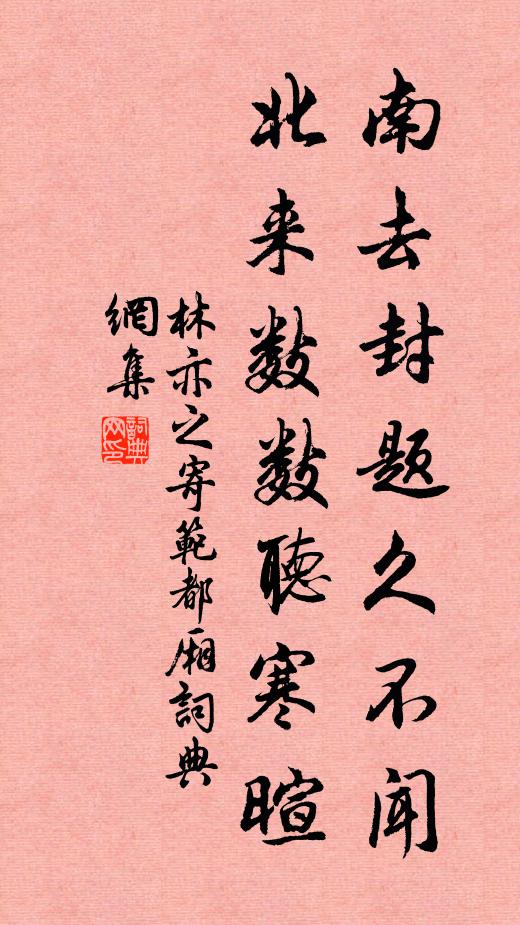 南去封题久不闻
北来数数聽寒暄
林亦之寄範都廂詞典
網集
詞典网印